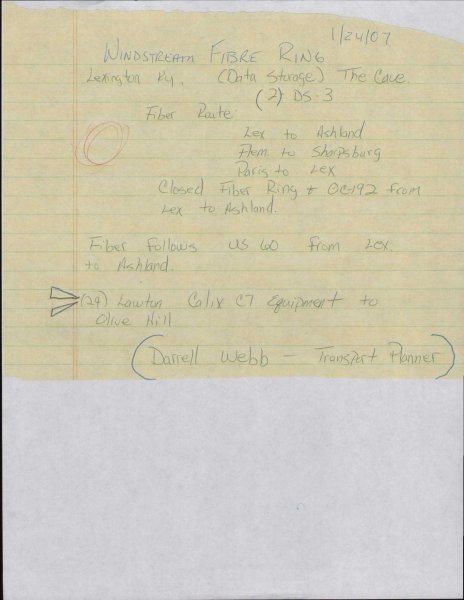 1/24/07
WINDSTREAM FIBRE RING
Lexington Ky. (Data Storage) The Cave.
(2) DS-3
Fiber Route:
Lex to Ashland
Flem. to Sharpsburg
Paris to Lex
Closed Fiber Ring & OC192 from
Lex to Ashland.
Fiber Follows US 60 from Lex.
to Ashland.
(24) Lawton Calix C7 Equipment to
Olive Hill
(Darrell Webb - Transport Planner)